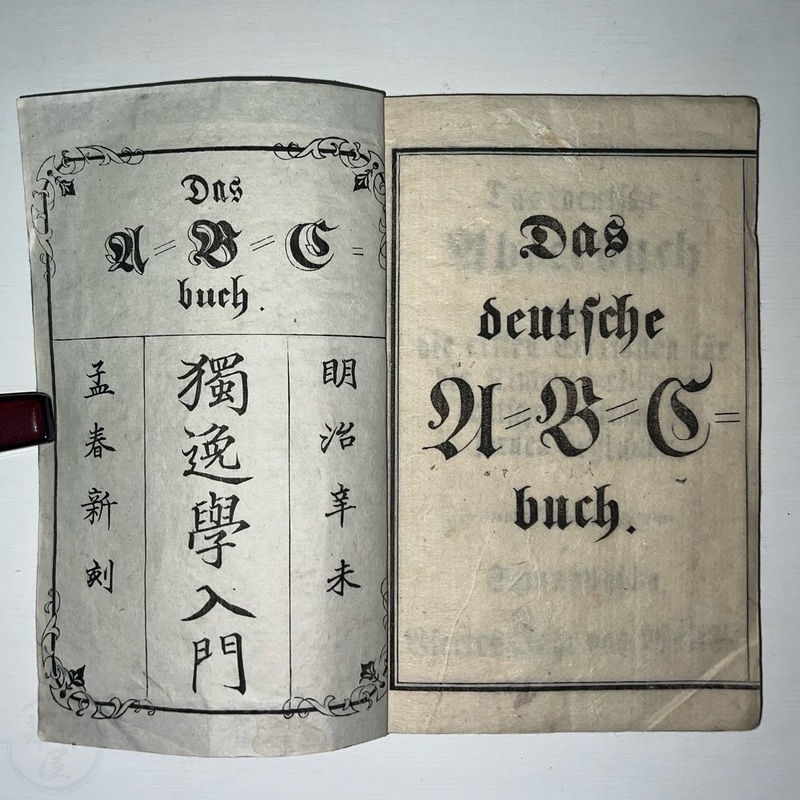 Das
A=B=C=
buch.
明治辛未
獨逸學入門
孟春新刻
Das
deutſche
A=B=C=
buch.